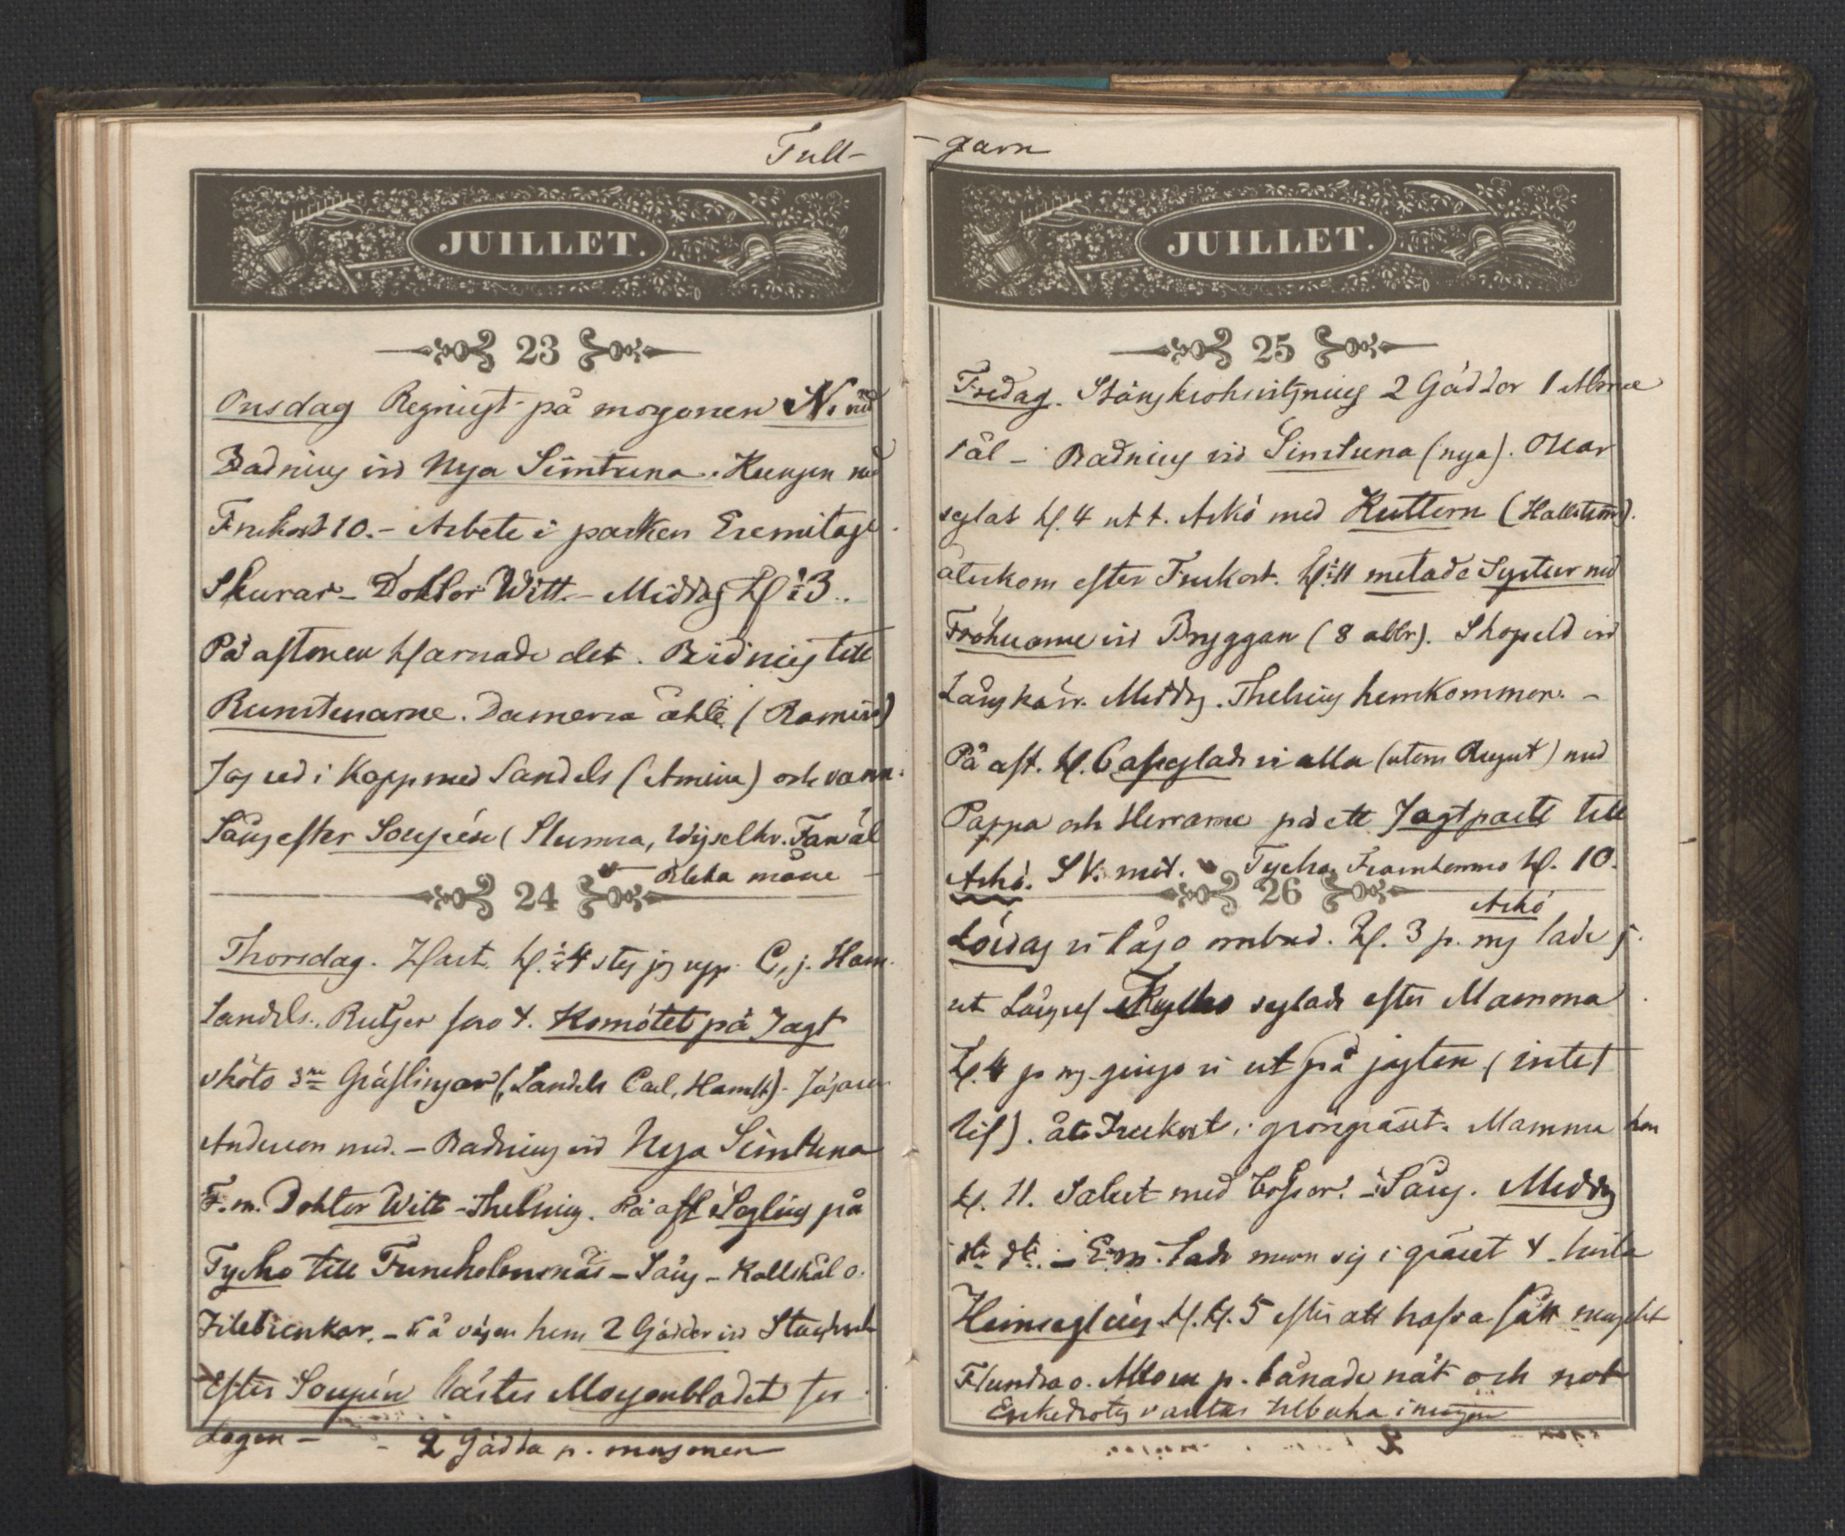 Tull-
JUILLET.
23
Onsdag Regnigt på morgonen N. vid
Badning vid Nya Simtuna. Kungen med
Frukost 10.- Arbete i parken Eremitage.
Skurar - Doktor Witt. - Middag kl ½ 3.
På aftonen klarnade det. Ridning till
Runstenarne. Damerna åkte (Ramido)
Jag red i Kapp med Sandels (Amina) och vann.
Sång efter Soupéen (Stumma, Fanål
Bleka måne -
24
Thorsdag. Hast. kl. ½ 4 steg jag upp. C, j. Ham.
Sandels. Rutger foro t. Komötet på Jagt
sköto 3ne Gräflingar (Sandels Carl, Hamilt). Jägaren
Anderson med. - Badning vid Nya Simtuna
F.m. Doktor Witt - Thelning. På aft Segling på
Tycho till - Sång - Kallskål o.
Filebunkar. - På vägen hem 2 Gäddor vid
Efter Soupén lästes Morgonbladet för
dagen - - 2 Gädda p. morgonen
- garn
JUILLET.
25
Fredag. 2 Gäddor 1 Abborre
sål - Badning vid Simtuna (nya). Oscar
seglat kl. 4 ut t. Askö med Kuttern (Hallström).
återkom efter Frukost. kl ½ 11 metade Systur med
Fröknarne vid Bryggan (8 abbr). Skogseld vid
Långkärr. Middag. Thelning hemkommen. -
På aft. kl. 6 afseglade vi alla (utom August) med
Pappa och Herrarne på ett Jagtparti till
Askö. S.V. vind. Tycho. Framkommo kl. 10.
26
Askö
Lördag vi lågo ombord. kl. 3 p. mg lade j.
ut Långref seglade efter Mamma
kl. 4 p mg. gingo vi ut på jagten (intet
lif). åto Frukost i gröngräset. Mamma kom
kl. 11. Salut med bössor. - Sång. Middag
dto dto. - E.m. lade man sig i gräset t. hvila
Hemsegling kl. 5 efter att hafva fått mycket
Flundra o. Abborr p. lånade nät och not
Enkedrottn väntas tillbaka i morgon